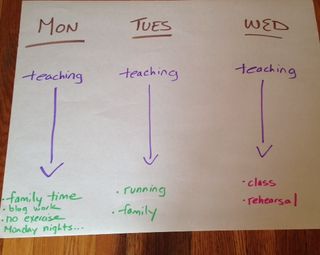 MON
TUES
WED
teaching
teaching
teaching
• family time
• blog work
• no exercise
Monday nights...
• running
• family
• class
• rehearsal